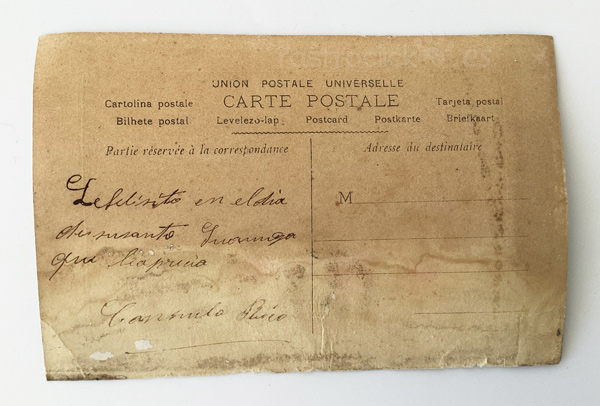 UNION POSTALE UNIVERSELLE
Cartolina postale CARTE POSTALE Tarjeta postal
Bilhete postal Levelezo-lap Postcard Postkarte Briefkaart
Partie réservée à la correspondance Adresse du destinataire
M
Lefelisito en eldia
desusanto
que leaprecia
Consuelo